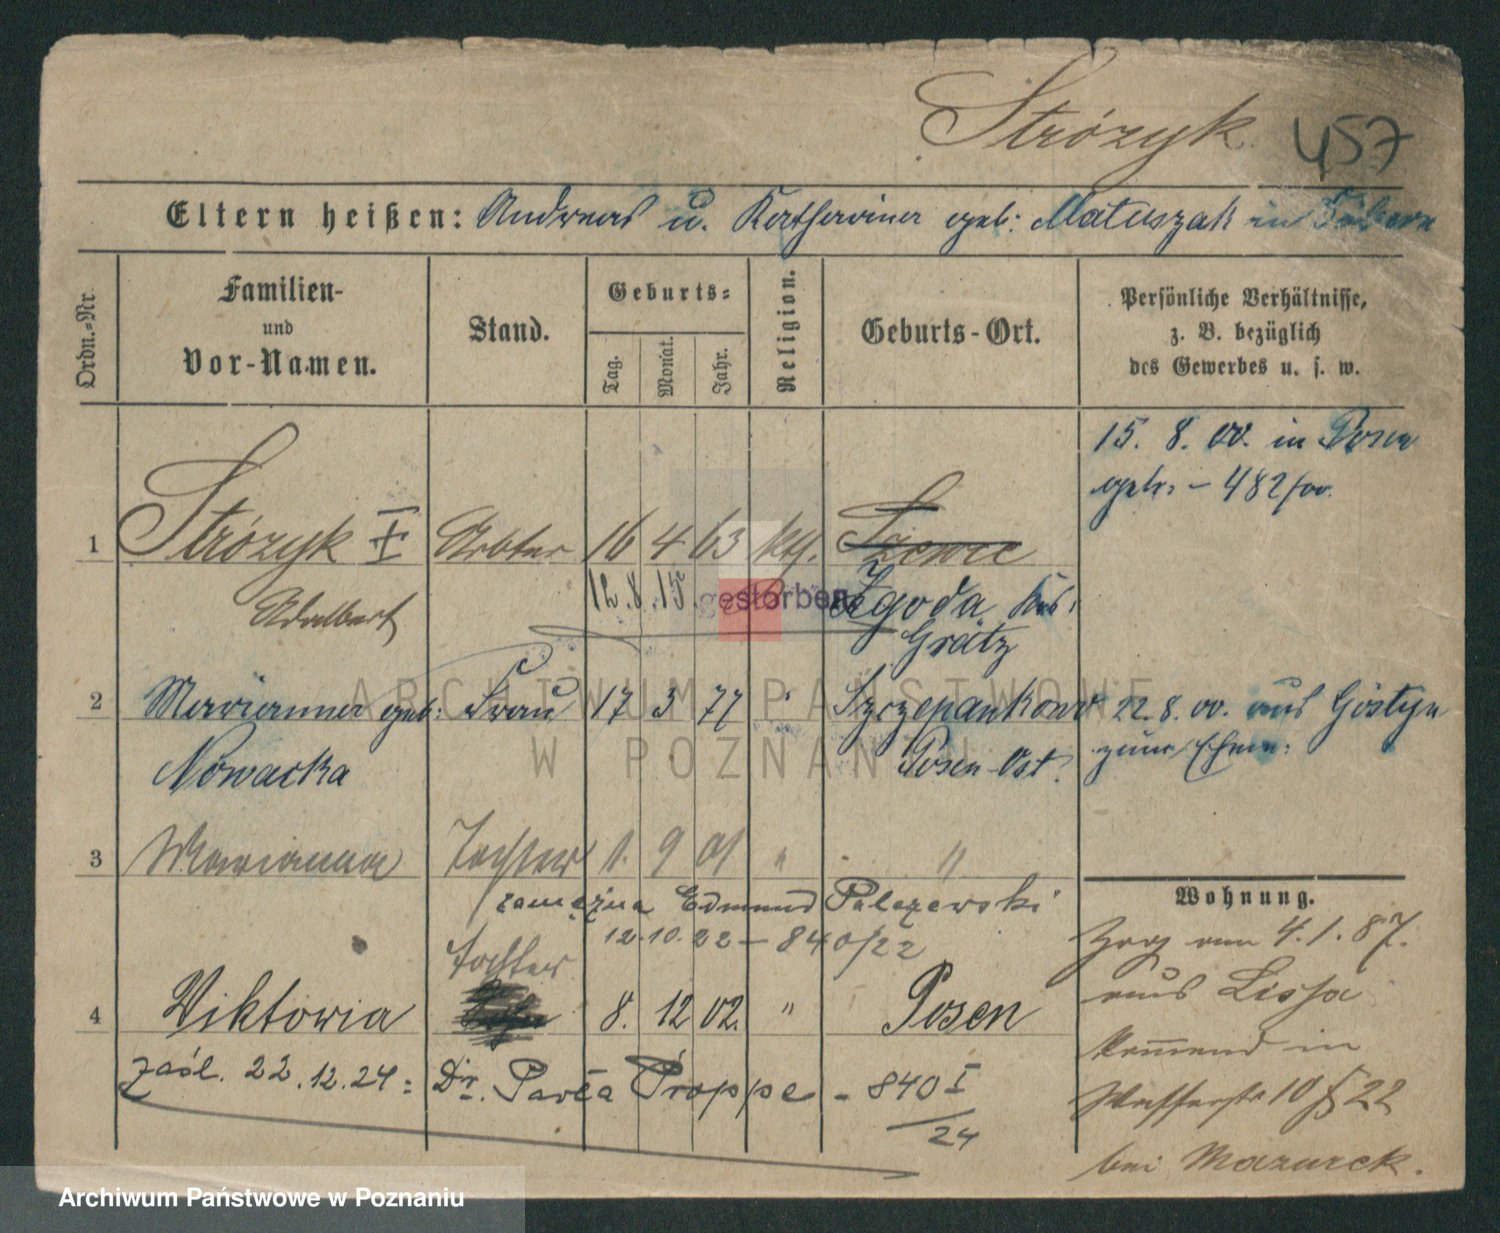 Strózyk 457
Eltern heißen: Andreas u. Katharina geb: Matuszak in
Ordn.-Nr.
Familien-
und
Vor-Namen.
Stand.
Geburts-
Tag. Monat. Jahr.
Religion.
Geburts-Ort.
Persönliche Verhältnisse,
z. B. bezüglich
des Gewerbes u. s. w.
15. 8. 00. in Posen
geb. - 482/00.
1 Strózyk I Arbter 16 4 63 kth. Szewce
Adalbert 12.8.15 gestorben Zgoda Krs.
Grätz
2 Marianna geb: Frau 17 3 77 " Szczepankowo 22.8.00. aus Gostyn
Nowacka Posen Ost. zum Ehem:
3 Marianna Tochter 1. 9 01 " "
zamężna Edmund Palczewski
12.10.22 - 840/22
Tochter
4 Viktoria 8. 12 02. " Posen
zaśl. 22.12.24: Dr. Pawła Proppe - 840 I
/24
Wohnung.
Zog am 4.1.87.
aus Lissa
kommend in
Wasserstr 10 f 22
bei Mazurek.
ARCHIWUM PAŃSTWOWE
W POZNANIU
Archiwum Państwowe w Poznaniu